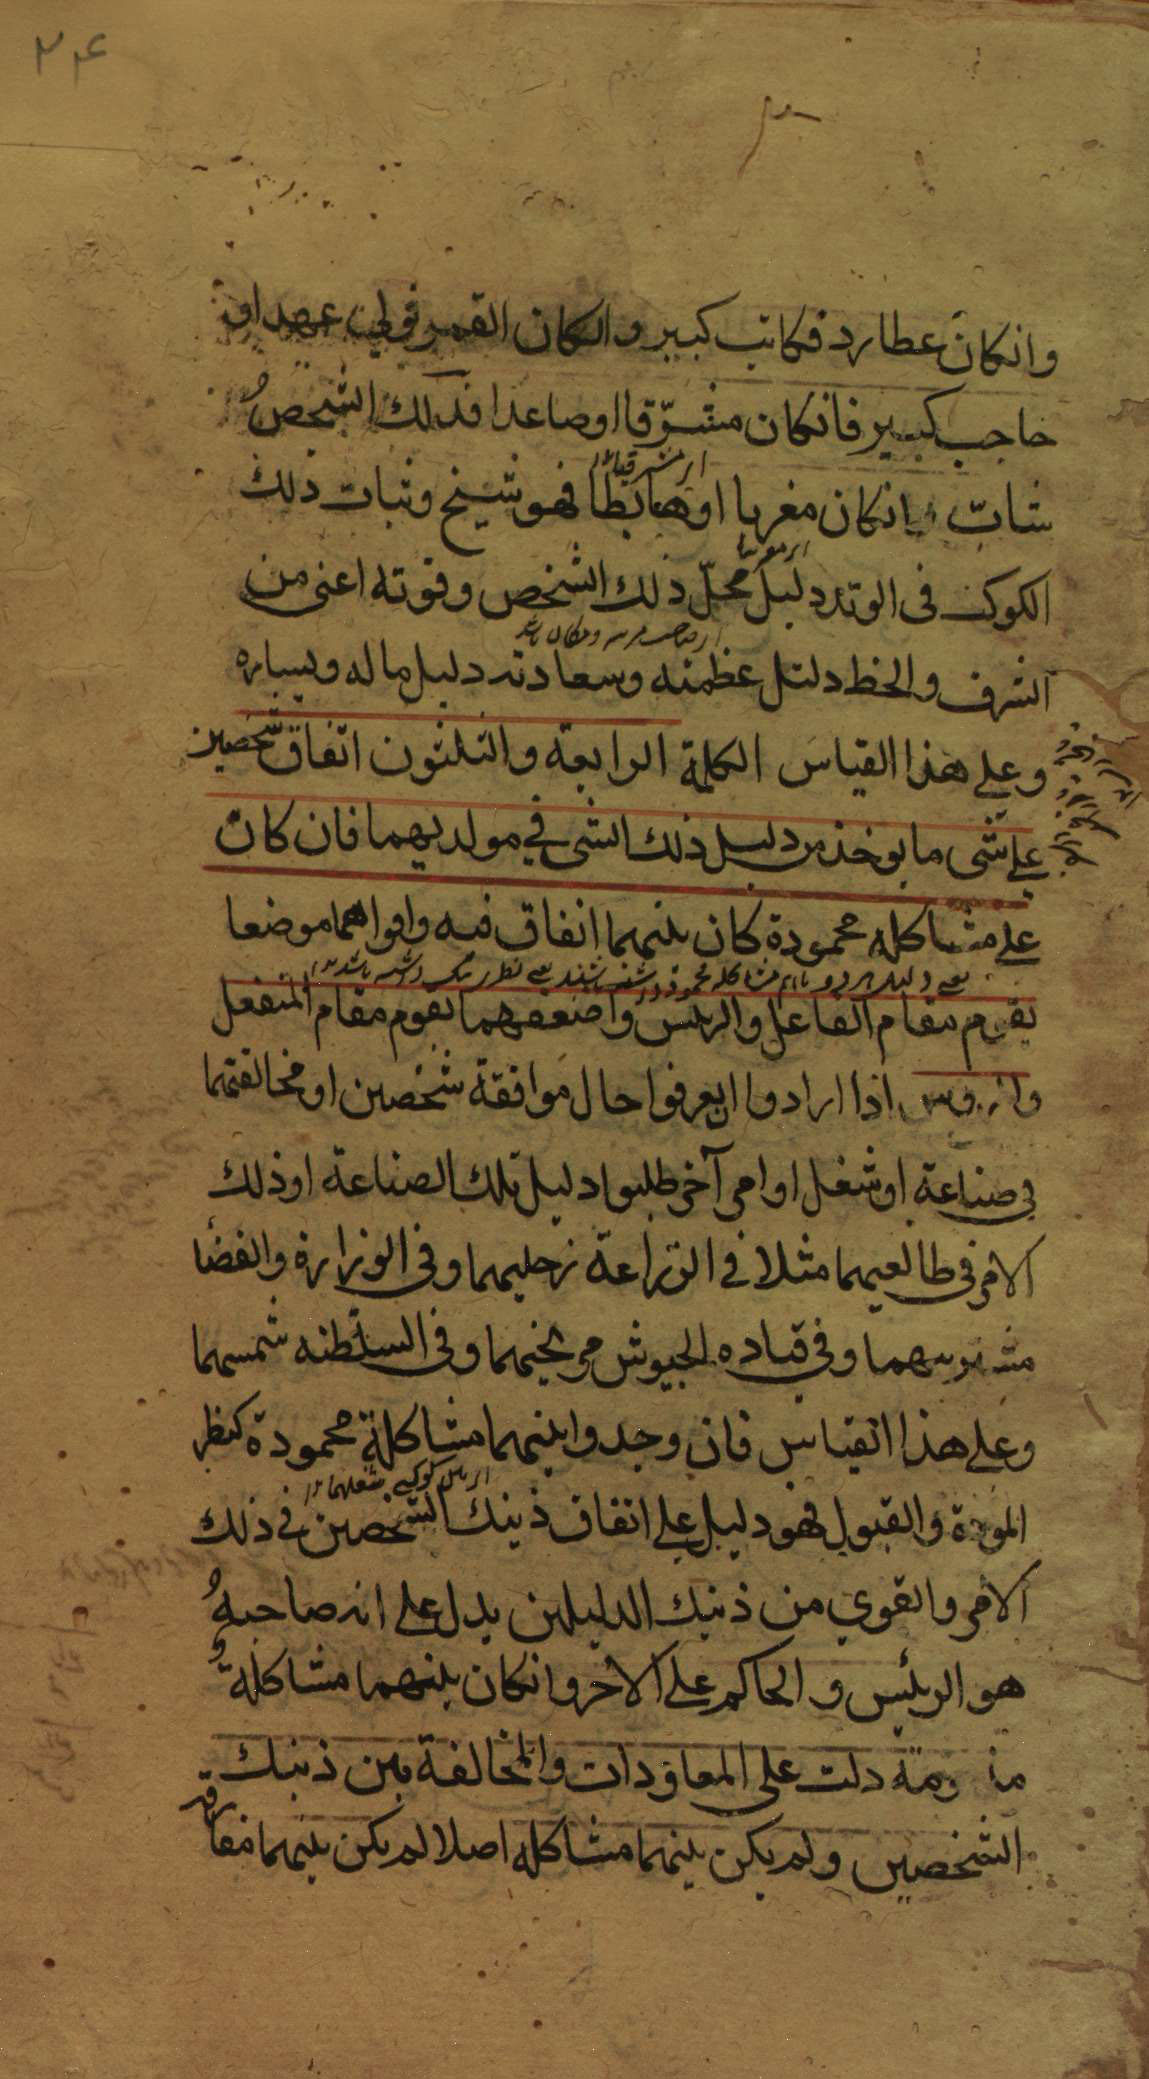 ۲۴
وانكان عطارد فكاتب كبير وانكان القمر فولي عهد او
حاجب كبير فانكان مشرّقا او صاعدا فذلك الشخصُ
شابّ وانكان مغربا او هابطا فهو شيخ وثبات ذلك
الكوكب فى الوتد دليل محلّ ذلك الشخص وقوته اعنى من
الشرف والحظ دليل عظمته وسعادته دليل ماله ويساره
وعلى هذا القياس الكلمة الرابعة والثلثون اتفاق شخصين
على شى ما يوخذ من دليل ذلك الشى في مولديهما فان كان
على مشاكله محمودة كان بينهما اتفاق فيه واقواهما موضعا
يقوم مقام الفاعل والرئيس واضعفهما يقوم مقام المنفعل
اذا ارادوا ان يعرفوا حال موافقة شخصين او مخالفتهما
في صناعة او شغل او امر آخر طلبوا دليل تلك الصناعة او ذلك
الامر في طالعيهما مثلا فى الزراعة زحليهما وفى الوزارة والقضا
مشتريهما وفى قياده الجيوش مريخيهما وفى السلطنه شمسهما
وعلى هذا القياس فان وجدوا بينهما مشاكلة محمودة كنظر
المودة والقبول فهو دليل على اتفاق ذينك الشخصين في ذلك
الامر والقوي من ذينك الدليلين يدل على انه صاحبهُ
هو الرئيس والحاكم على الآخر وانكان بينهما مشاكلةٌ
دلت على المعاودات والمخالفة بين ذينك
الشخصين ولم يكن بينهما مشاكله اصلا لم يكن بينهما